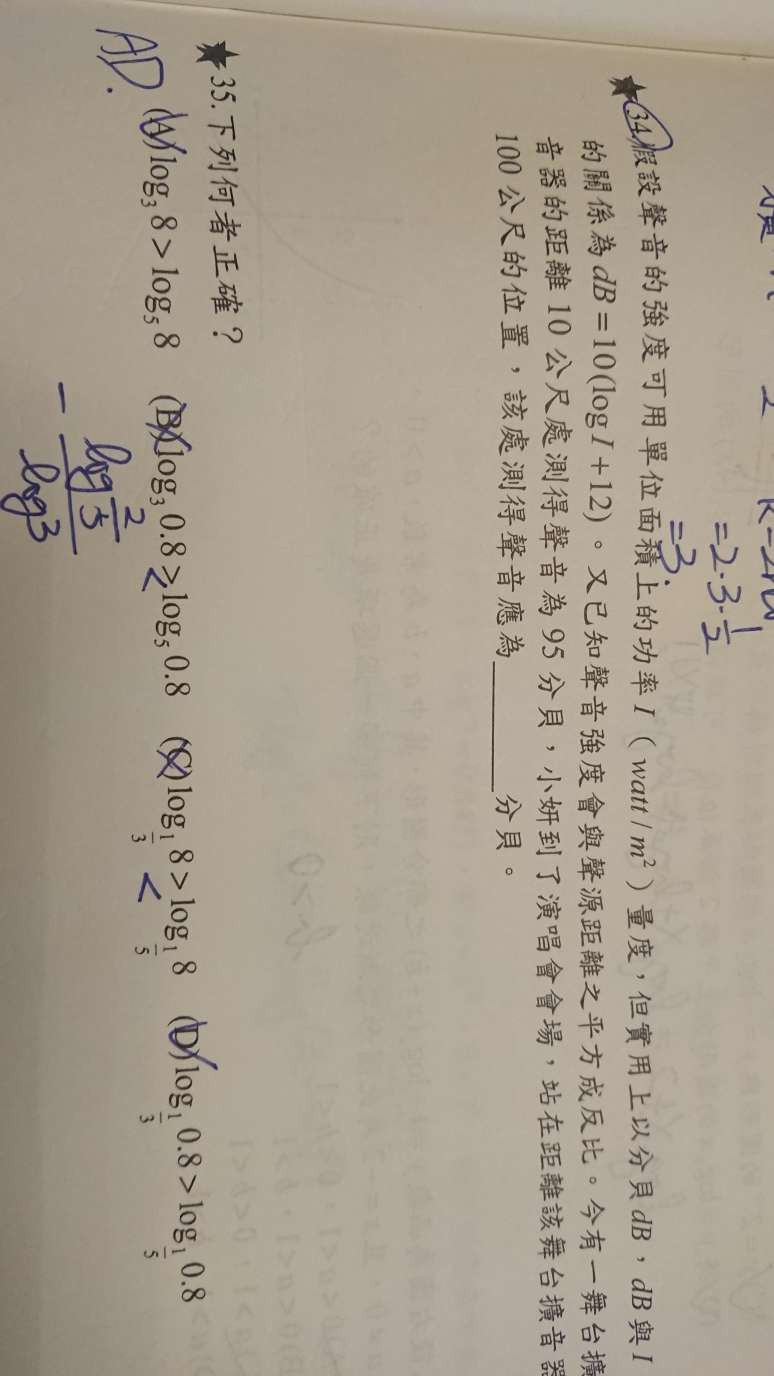 =2·3·\frac{1}{2}
=3.
★34.假設聲音的強度可用單位面積上的功率 I（watt / m²）量度，但實用上以分貝 dB，dB 與 I
的關係為 dB＝10(log I＋12)。又已知聲音強度會與聲源距離之平方成反比。今有一舞台擴
音器的距離 10 公尺處測得聲音為 95 分貝，小妍到了演唱會會場，站在距離該舞台擴音器
100 公尺的位置，該處測得聲音應為________分貝。
★35.下列何者正確？
AD.
(A) log₃ 8 > log₅ 8 (B) log₃ 0.8 > log₅ 0.8 (C) log_{1/3} 8 > log_{1/5} 8 (D) log_{1/3} 0.8 > log_{1/5} 0.8
< <